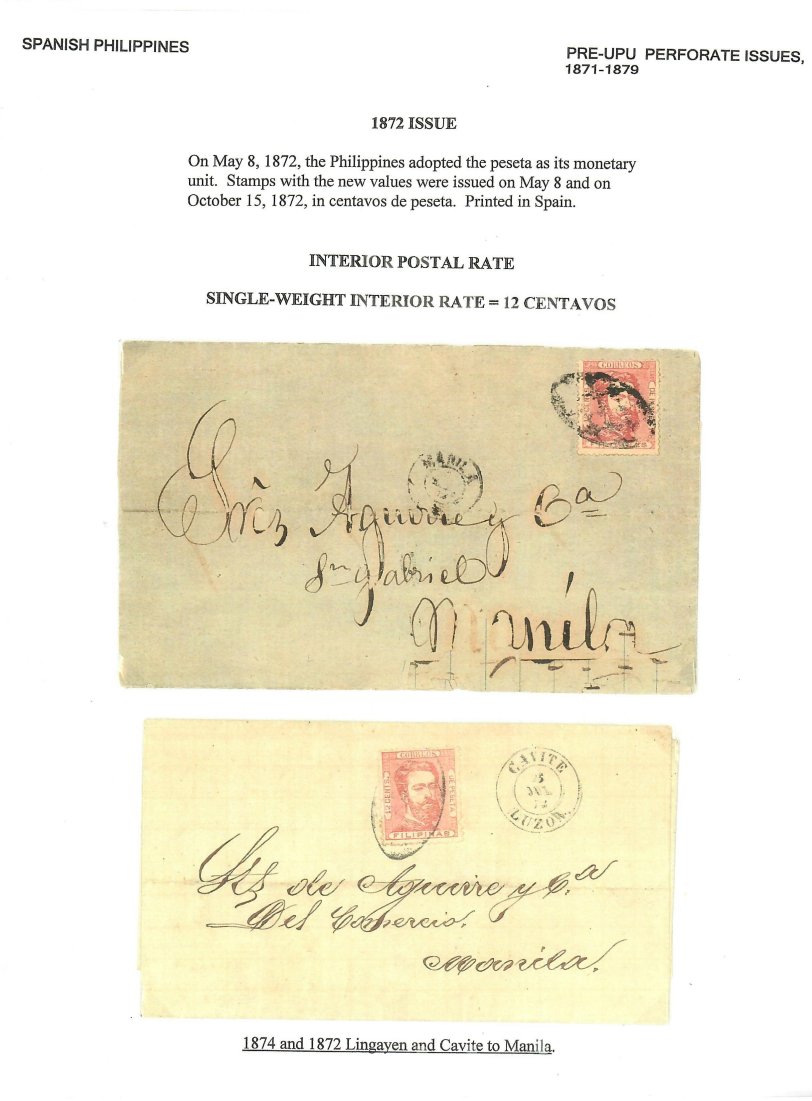 SPANISH PHILIPPINES
PRE-UPU PERFORATE ISSUES,
1871-1879
1872 ISSUE
On May 8, 1872, the Philippines adopted the peseta as its monetary
unit. Stamps with the new values were issued on May 8 and on
October 15, 1872, in centavos de peseta. Printed in Spain.
INTERIOR POSTAL RATE
SINGLE-WEIGHT INTERIOR RATE = 12 CENTAVOS
CORREOS
MANILA
Aguirre y Ca
Sn gabriel
Manila
CORREOS
12 CENTS
DE PESETA
FILIPINAS
CAVITE
JUL
72
LUZON.
de Aguirre y Ca
Del Comercio.
Manila.
1874 and 1872 Lingayen and Cavite to Manila.